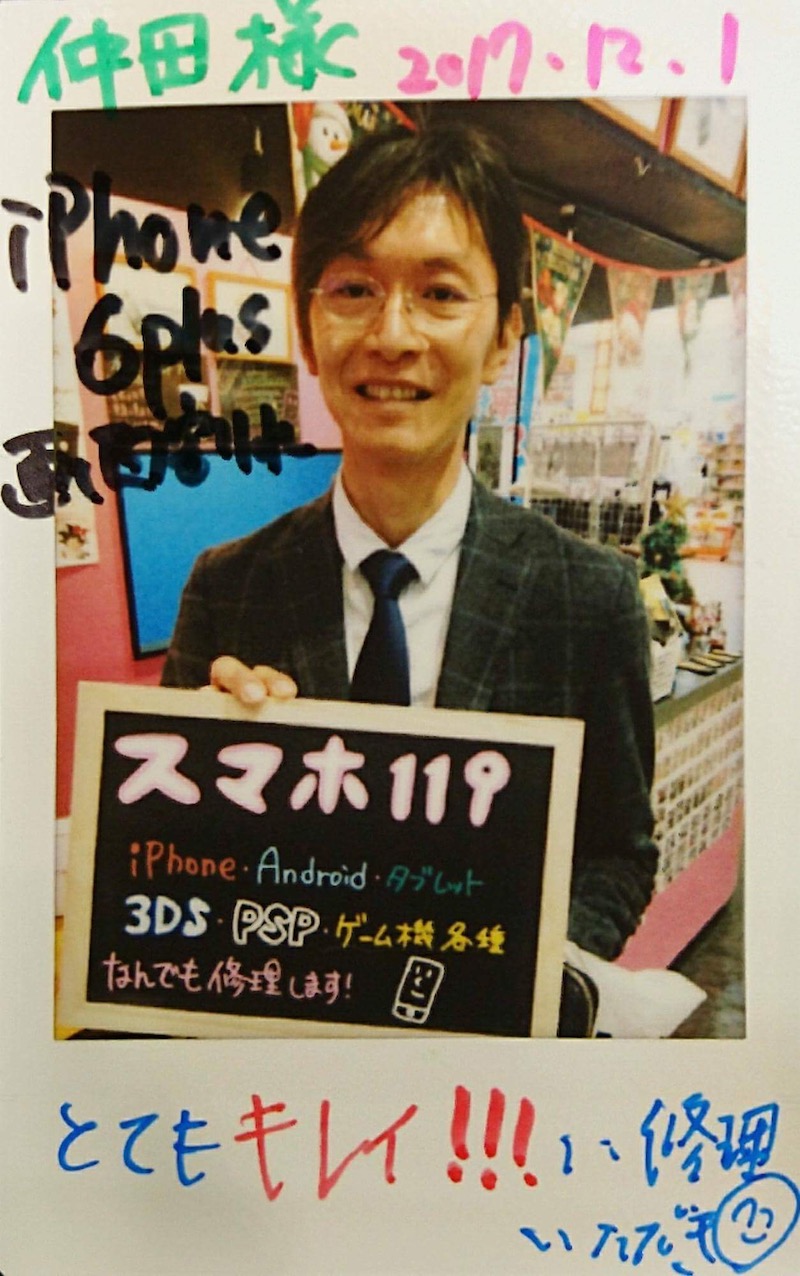 仲田様 2017.12.1
iPhone
6plus
画面割れ
スマホ119
iPhone・Android・タブレット
3DS・PSP・ゲーム機各種
なんでも修理します!
とてもキレイ!!!に修理
いただき